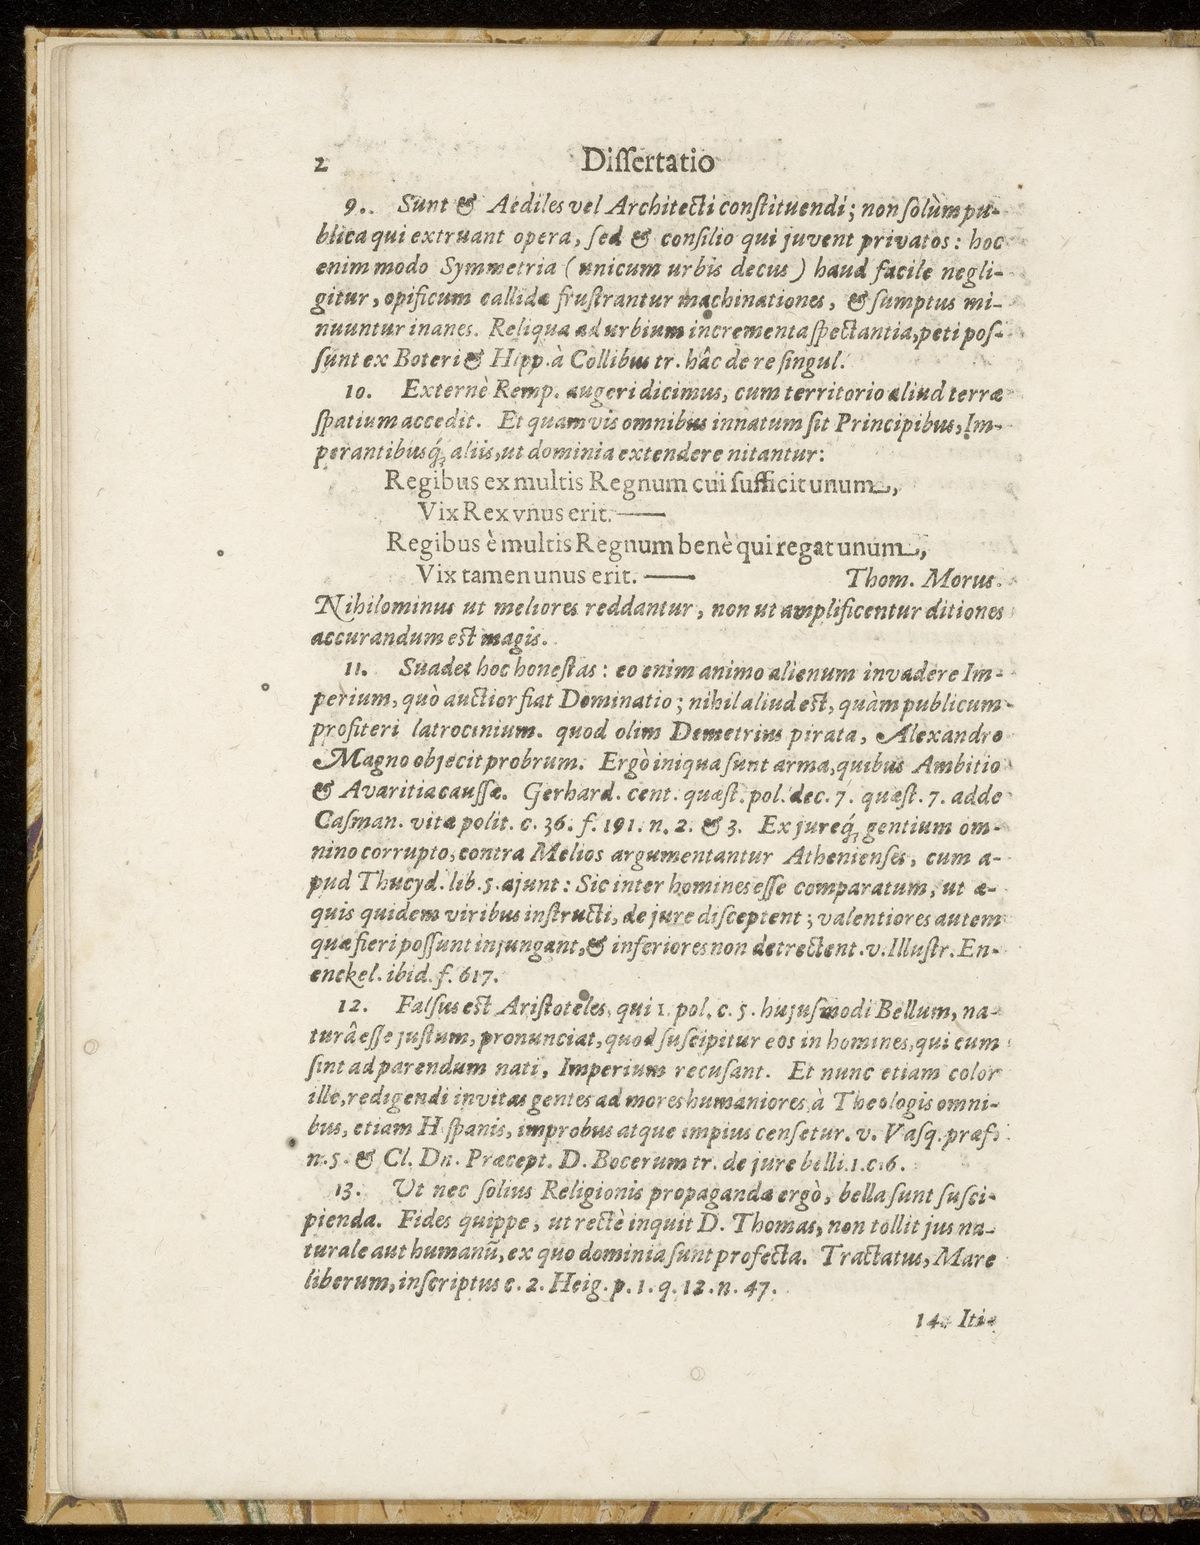 2 Dissertatio
9. Sunt & Aediles vel Architecti constituendi; non solùm pu-
blica qui extruant opera, sed & consilio qui juvent privatos: hoc
enim modo Symmetria (unicum urbis decus) haud facile negli-
gitur, opificum callidæ frustrantur machinationes, & sumptus mi-
nuuntur inanes. Reliqua ad urbium incrementa spectantia, peti pos-
sunt ex Boteri & Hipp. à Collibus tr. hâc de re singul.
10. Externè Remp. augeri dicimus, cum territorio aliud terræ
spatium accedit. Et quamvis omnibus innatum sit Principibus, Im-
perantibusq́; aliis, ut dominia extendere nitantur:
Regibus ex multis Regnum cui sufficit unum,
Vix Rex vnus erit. —
Regibus è multis Regnum benè qui regat unum,
Vix tamen unus erit. — Thom. Morus.
Nihilominus ut meliores reddantur, non ut amplificentur ditiones
accurandum est magis.
11. Suadet hoc honestas: eo enim animo alienum invadere Im-
perium, quò auctior fiat Dominatio; nihil aliud est, quàm publicum
profiteri latrocinium. quod olim Demetrius pirata, Alexandro
Magno objecit probrum. Ergò iniqua sunt arma, quibus Ambitio
& Avaritia caussæ. Gerhard. cent. quæst. pol. dec. 7. quæst. 7. adde
Casman. vitæ polit. c. 36. f. 191. n. 2. & 3. Ex jureq́; gentium om-
nino corrupto, contra Melios argumentantur Athenienses, cum a-
pud Thucyd. lib. 5. ajunt: Sic inter homines esse comparatum, ut æ-
quis quidem viribus instructi, de jure disceptent; valentiores autem
quæ fieri possunt injungant, & inferiores non detrectent. v. Illustr. En-
enckel. ibid. f. 617.
12. Falsus est Aristoteles, qui 1. pol. c. 5. hujusmodi Bellum, na-
turâ esse justum, pronunciat, quod suscipitur eos in homines, qui cum
sint ad parendum nati, Imperium recusant. Et nunc etiam color
ille, redigendi invitas gentes ad mores humaniores, à Theologis omni-
bus, etiam Hispanis, improbus atque impius censetur. v. Vasq. præf.
n. 5. & Cl. Dn. Præcept. D. Bocerum tr. de jure belli. 1. c. 6.
13. Ut nec solius Religionis propagandæ ergò, bella sunt susci-
pienda. Fides quippe, ut rectè inquit D. Thomas, non tollit jus na-
turale aut humanū, ex quo dominia sunt profecta. Tractatus, Mare
liberum, inscriptus c. 2. Heig. p. 1. q. 12. n. 47.
14. Iti-